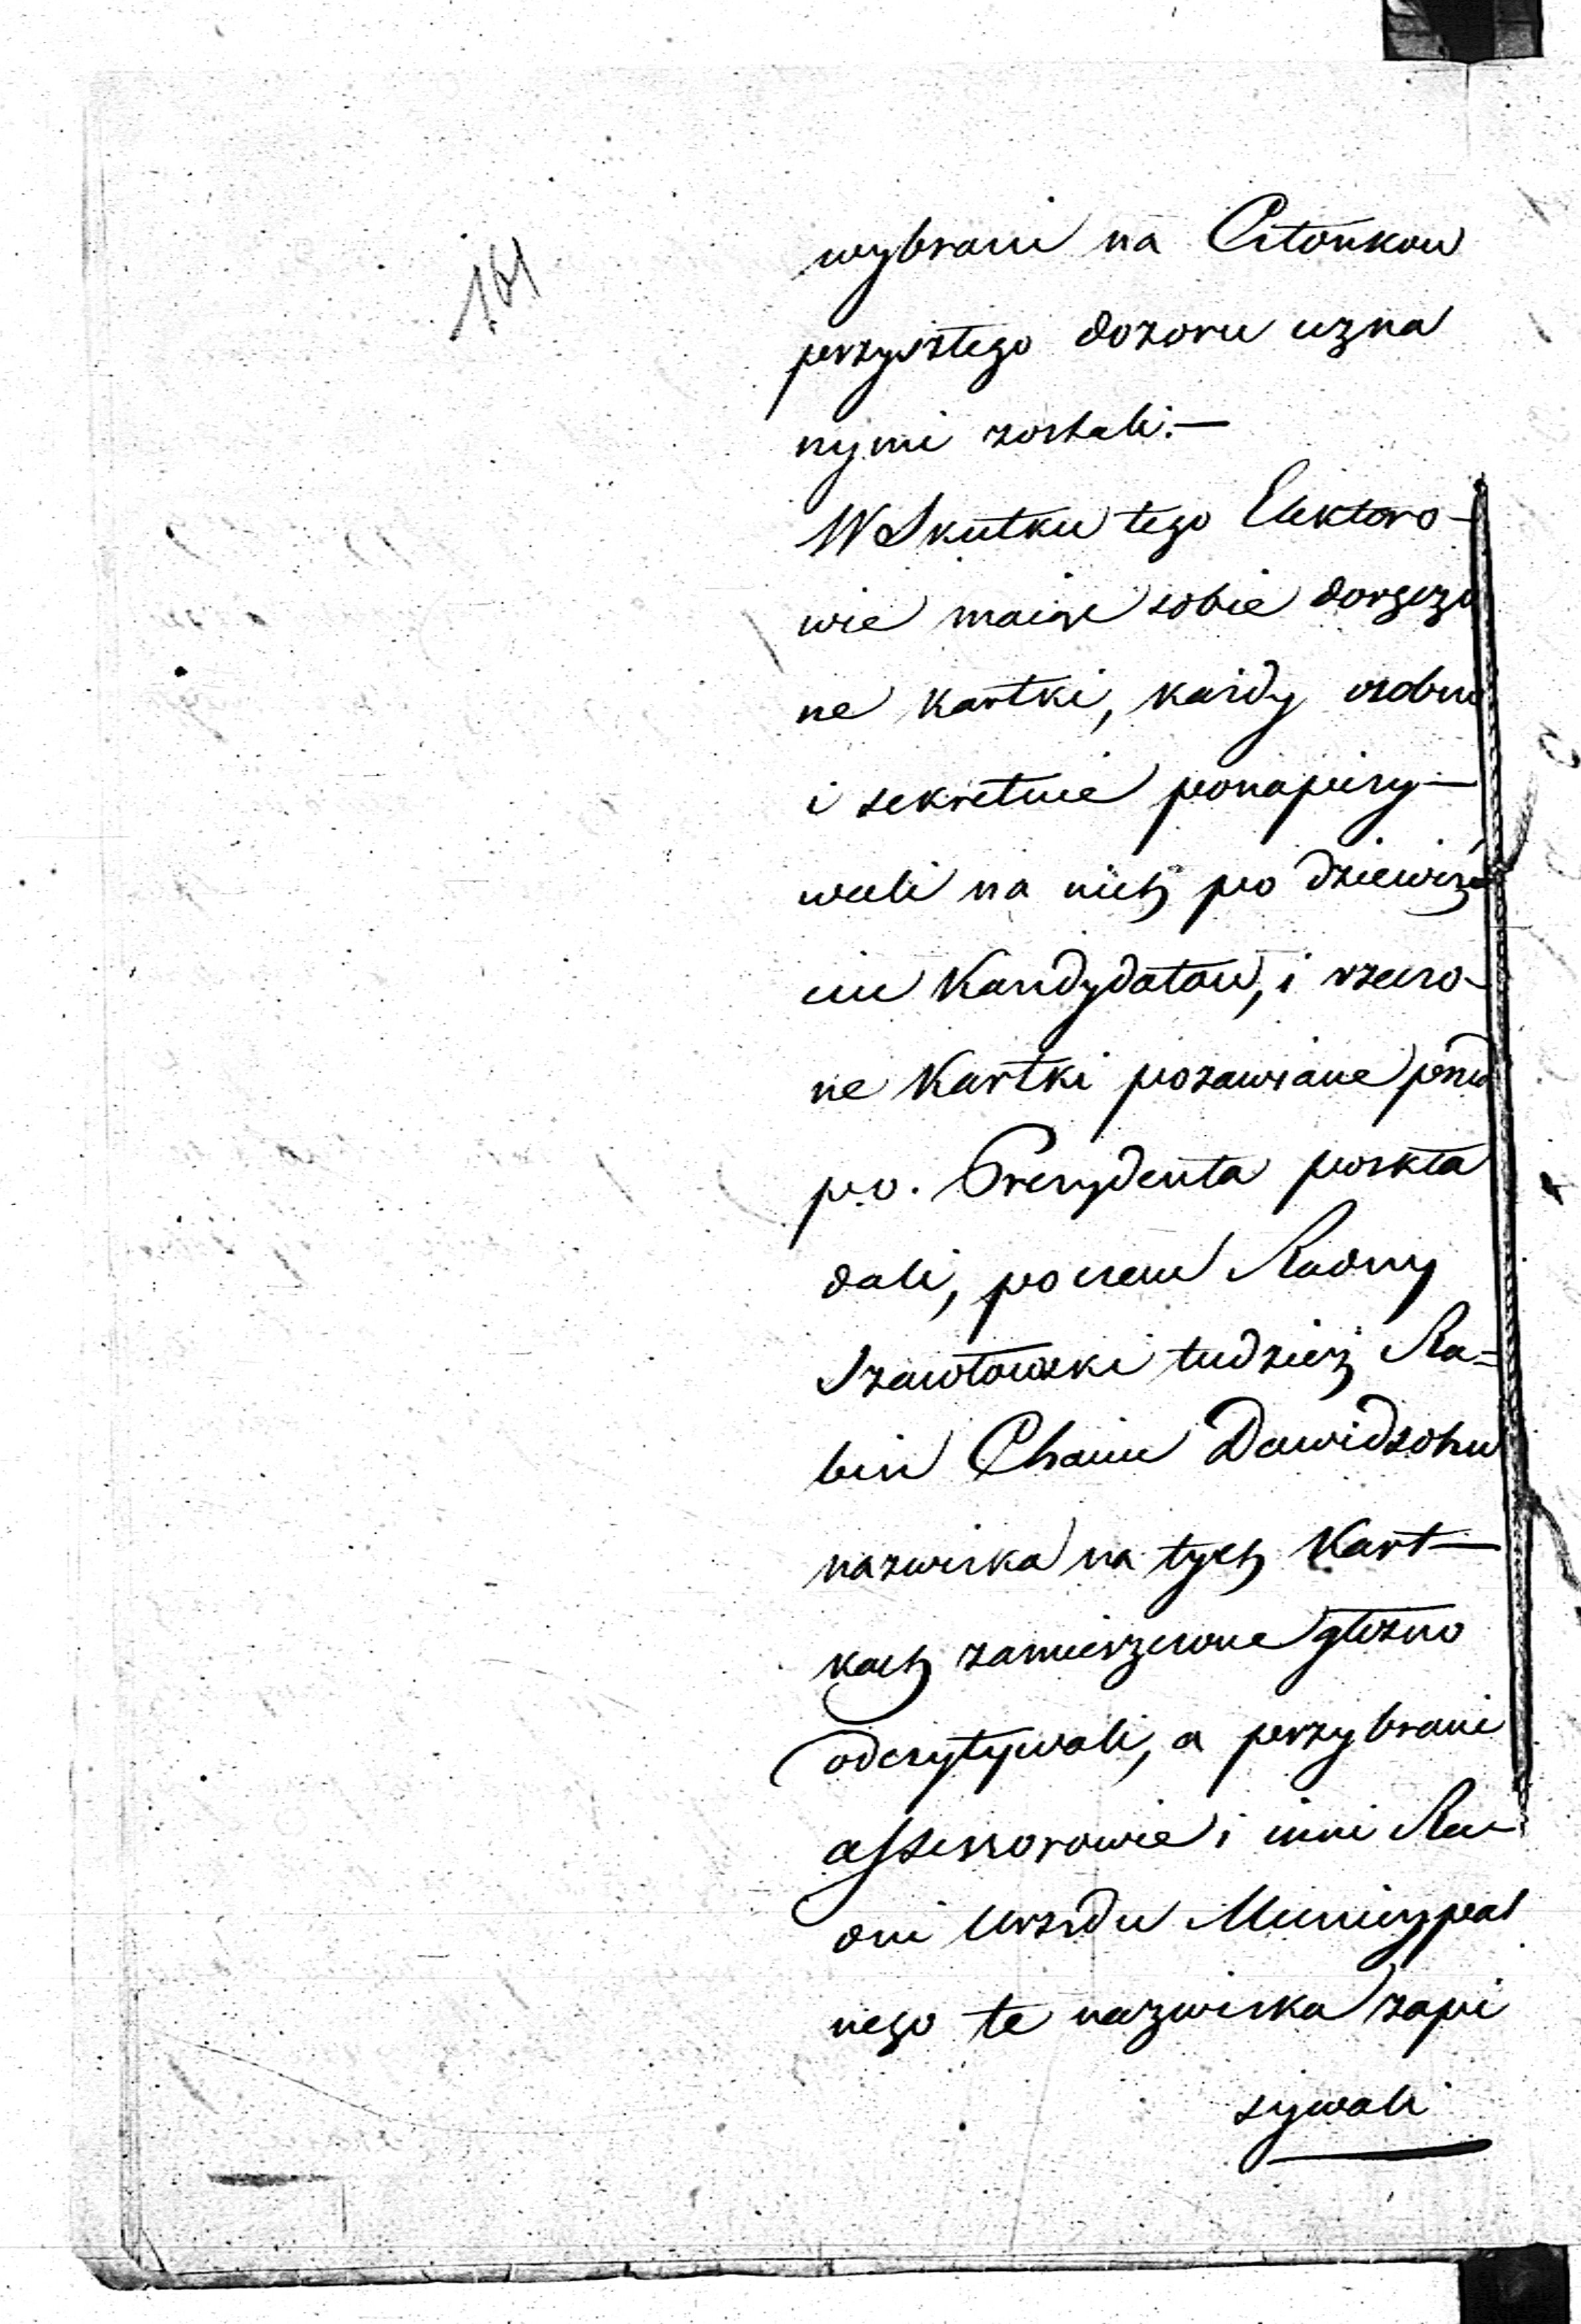 161
wybrani na Członków
przyszłego dozoru uzna
nymi zostali. —
W Skutku tego Elektoro-
wie maiąc sobie doręczo
ne kartki, każdy osobno
i sekretnie ponapisy-
wali na nich po dziewię
ciu Kandydatów, i rzeczo-
ne Kartki pozawiane przed
po. Prezydenta poskła
dali, poczem Radny
Szawłowski tudzież Ra=
bin Chaim Dawidsohn
nazwiska na tych Kart-
kach zamieszczone głośno
odczytywali, a przybrani
assessorowie i inni Ra-
dni Urzędu Municypal
nego te nazwiska zapi
sywali